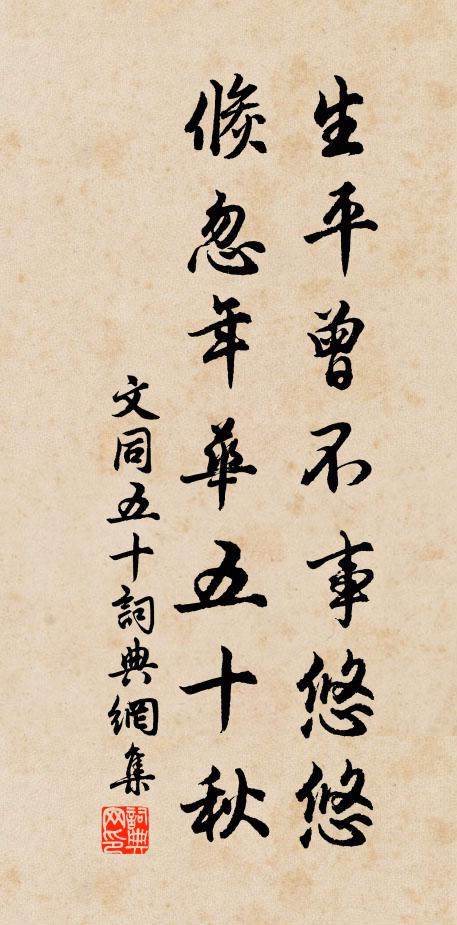 生平曾不事悠悠
倏忽年華五十秋
文同五十詞典網集
詞典網印